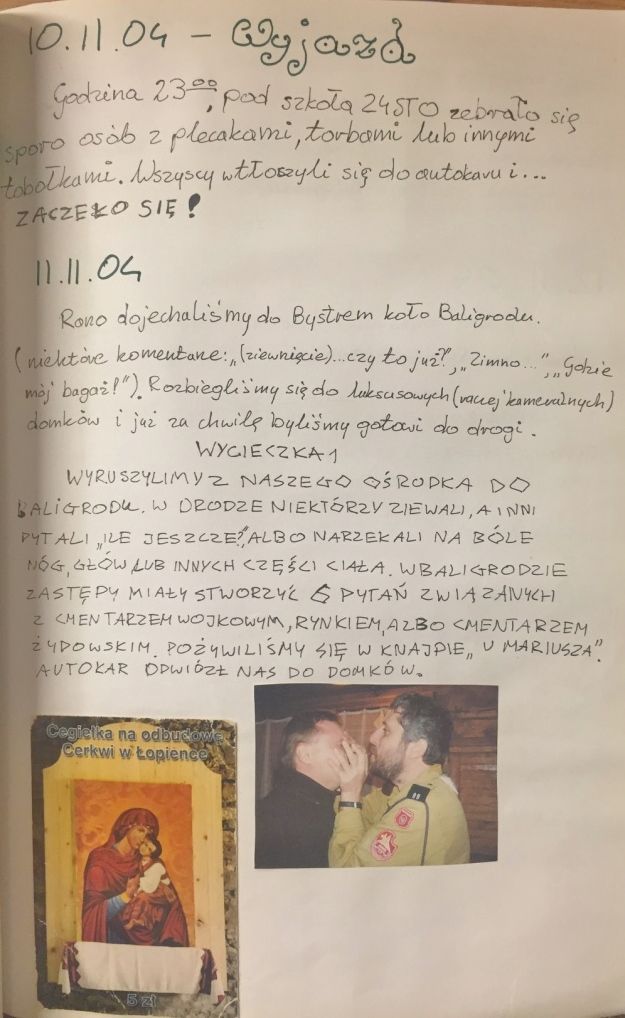 10.11.04 – Wyjazd
Godzina 23⁰⁰, pod szkołą 24STO zebrało się
sporo osób z plecakami, torbami lub innymi
tobołkami. Wszyscy wtłoszyli się do autokaru i...
ZACZĘŁO SIĘ!
11.11.04
Rano dojechaliśmy do Bystrem koło Baligrodu.
(niektóre komentarze: „(ziewnięcie)...czy to już?”, „Zimno...”, „Gdzie
mój bagaż?”). Rozbiegliśmy się do luksusowych (raczej kameralnych)
domków i już za chwilę byliśmy gotowi do drogi.
WYCIECZKA 1
WYRUSZYLIMY Z NASZEGO OŚRODKA DO
BALIGRODU. W DRODZE NIEKTÓRZY ZIEWALI, A INNI
PYTALI „ILE JESZCZE?”, ALBO NARZEKALI NA BÓLE
NÓG, GŁÓW LUB INNYCH CZĘŚCI CIAŁA. W BALIGRODZIE
ZASTĘPY MIAŁY STWORZYĆ 6 PYTAŃ ZWIĄZANYCH
Z CMENTARZEM WOJKOWYM, RYNKIEM, ALBO CMENTARZEM
ŻYDOWSKIM. POŻYWILIŚMY SIĘ W KNAJPIE „U MARIUSZA”.
AUTOKAR ODWIÓZŁ NAS DO DOMKÓW.
Cegiełka na odbudowę
Cerkwi w Łopience
5 zł